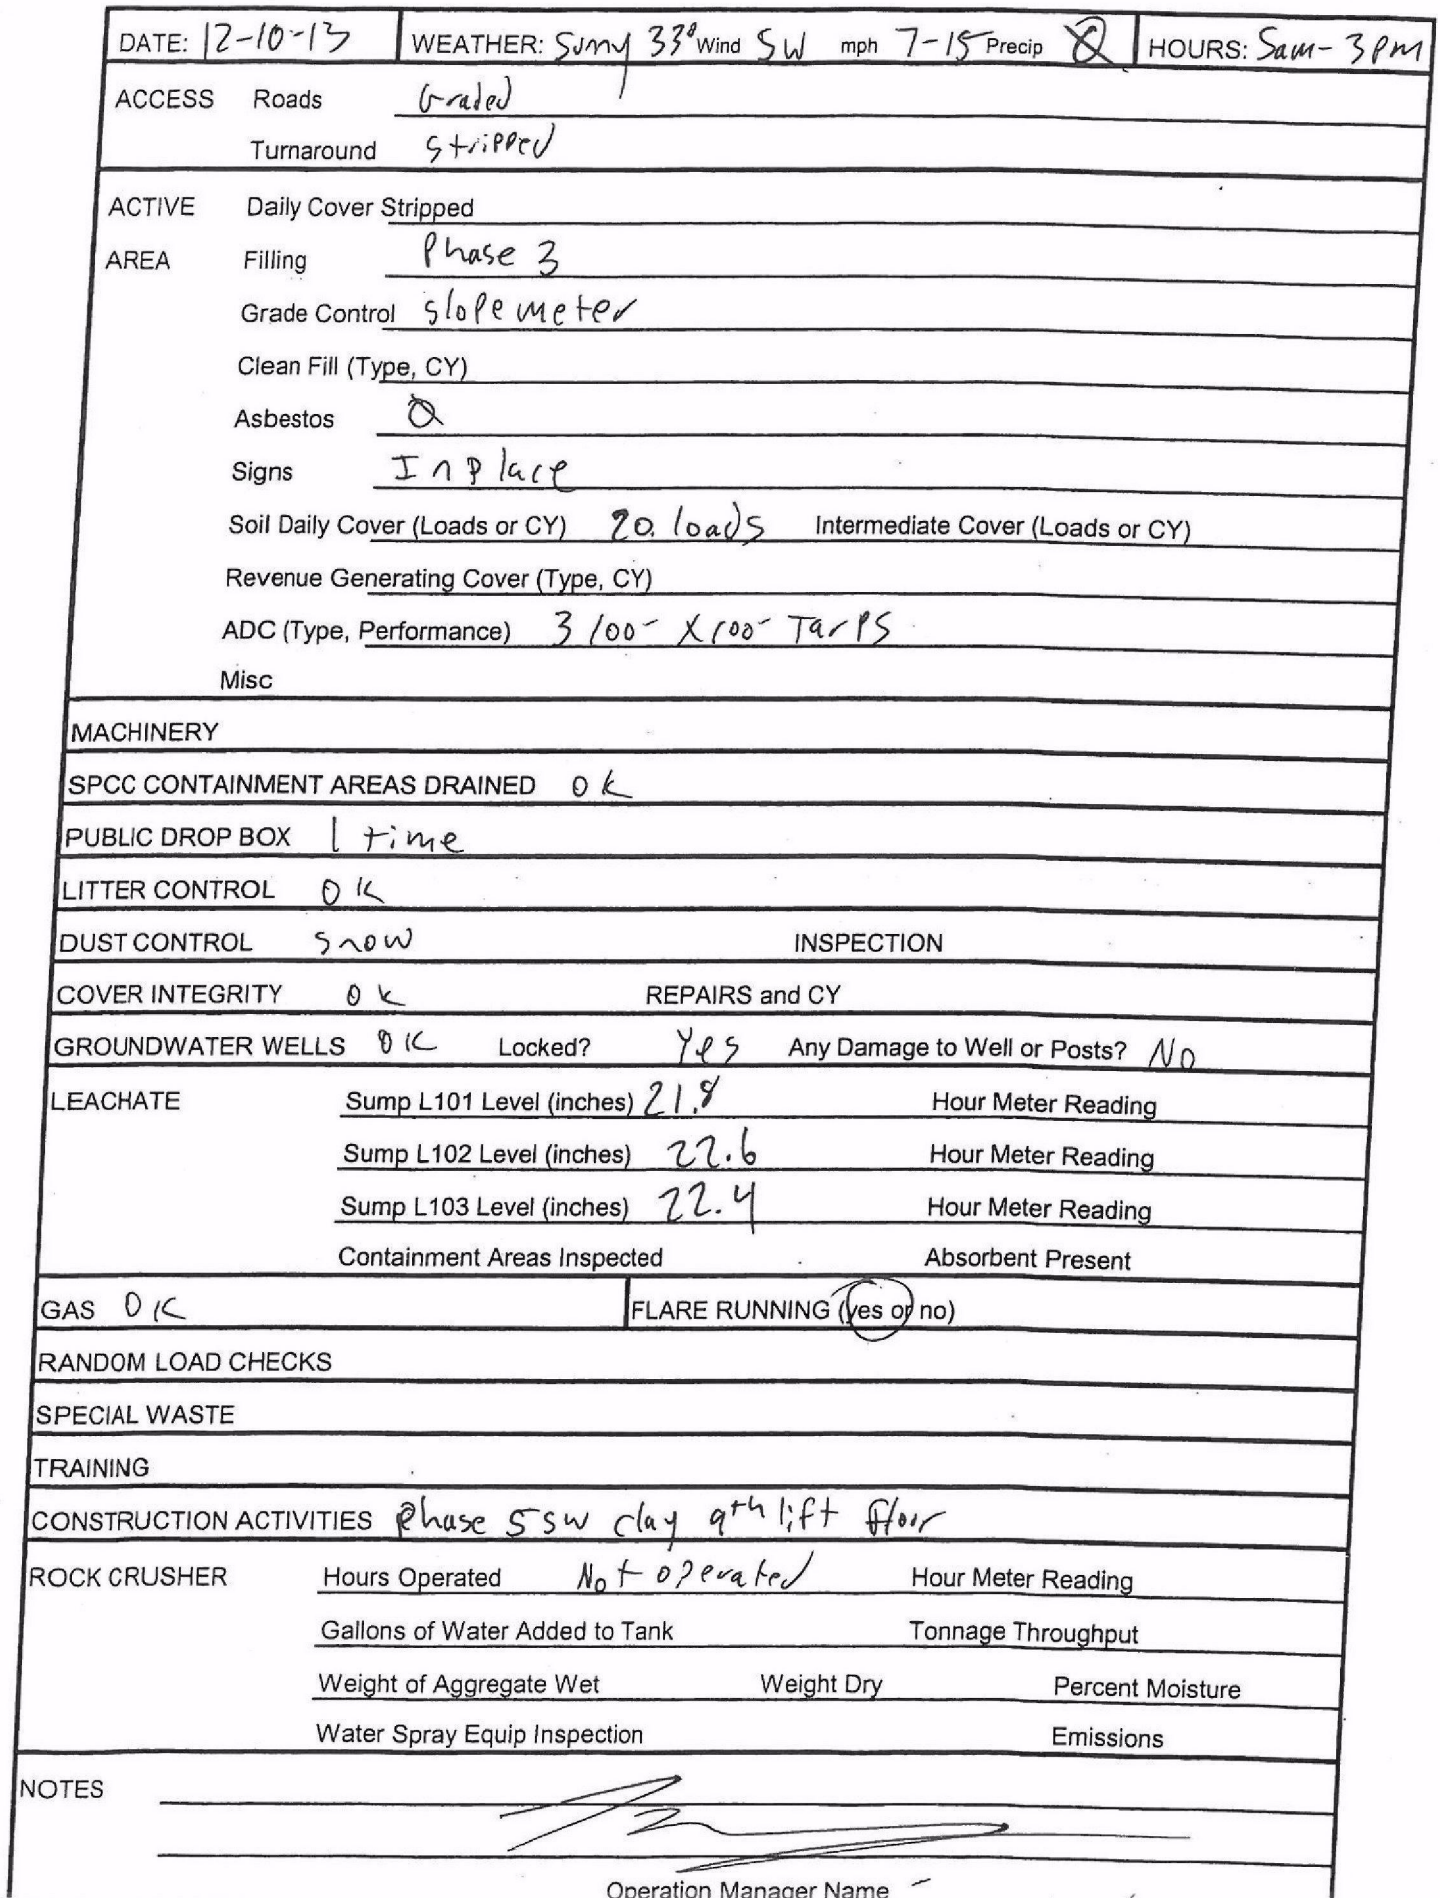 DATE: 12-10-13 WEATHER: Sunny 33° Wind SW mph 7-15 Precip Ø HOURS: 5am-3pm
ACCESS Roads Graded
Turnaround Stripped
ACTIVE Daily Cover Stripped
AREA Filling Phase 3
Grade Control slope meter
Clean Fill (Type, CY)
Asbestos Ø
Signs In place
Soil Daily Cover (Loads or CY) 20 loads Intermediate Cover (Loads or CY)
Revenue Generating Cover (Type, CY)
ADC (Type, Performance) 3 100- X 100- Tarps
Misc
MACHINERY
SPCC CONTAINMENT AREAS DRAINED OK
PUBLIC DROP BOX 1 time
LITTER CONTROL OK
DUST CONTROL Snow INSPECTION
COVER INTEGRITY OK REPAIRS and CY
GROUNDWATER WELLS OK Locked? Yes Any Damage to Well or Posts? No
LEACHATE Sump L101 Level (inches) 21.8 Hour Meter Reading
Sump L102 Level (inches) 22.6 Hour Meter Reading
Sump L103 Level (inches) 22.4 Hour Meter Reading
Containment Areas Inspected Absorbent Present
GAS OK FLARE RUNNING (yes or no)
RANDOM LOAD CHECKS
SPECIAL WASTE
TRAINING
CONSTRUCTION ACTIVITIES Phase 5 SW clay 9th lift floor
ROCK CRUSHER Hours Operated Not operated Hour Meter Reading
Gallons of Water Added to Tank Tonnage Throughput
Weight of Aggregate Wet Weight Dry Percent Moisture
Water Spray Equip Inspection Emissions
NOTES
Operation Manager Name